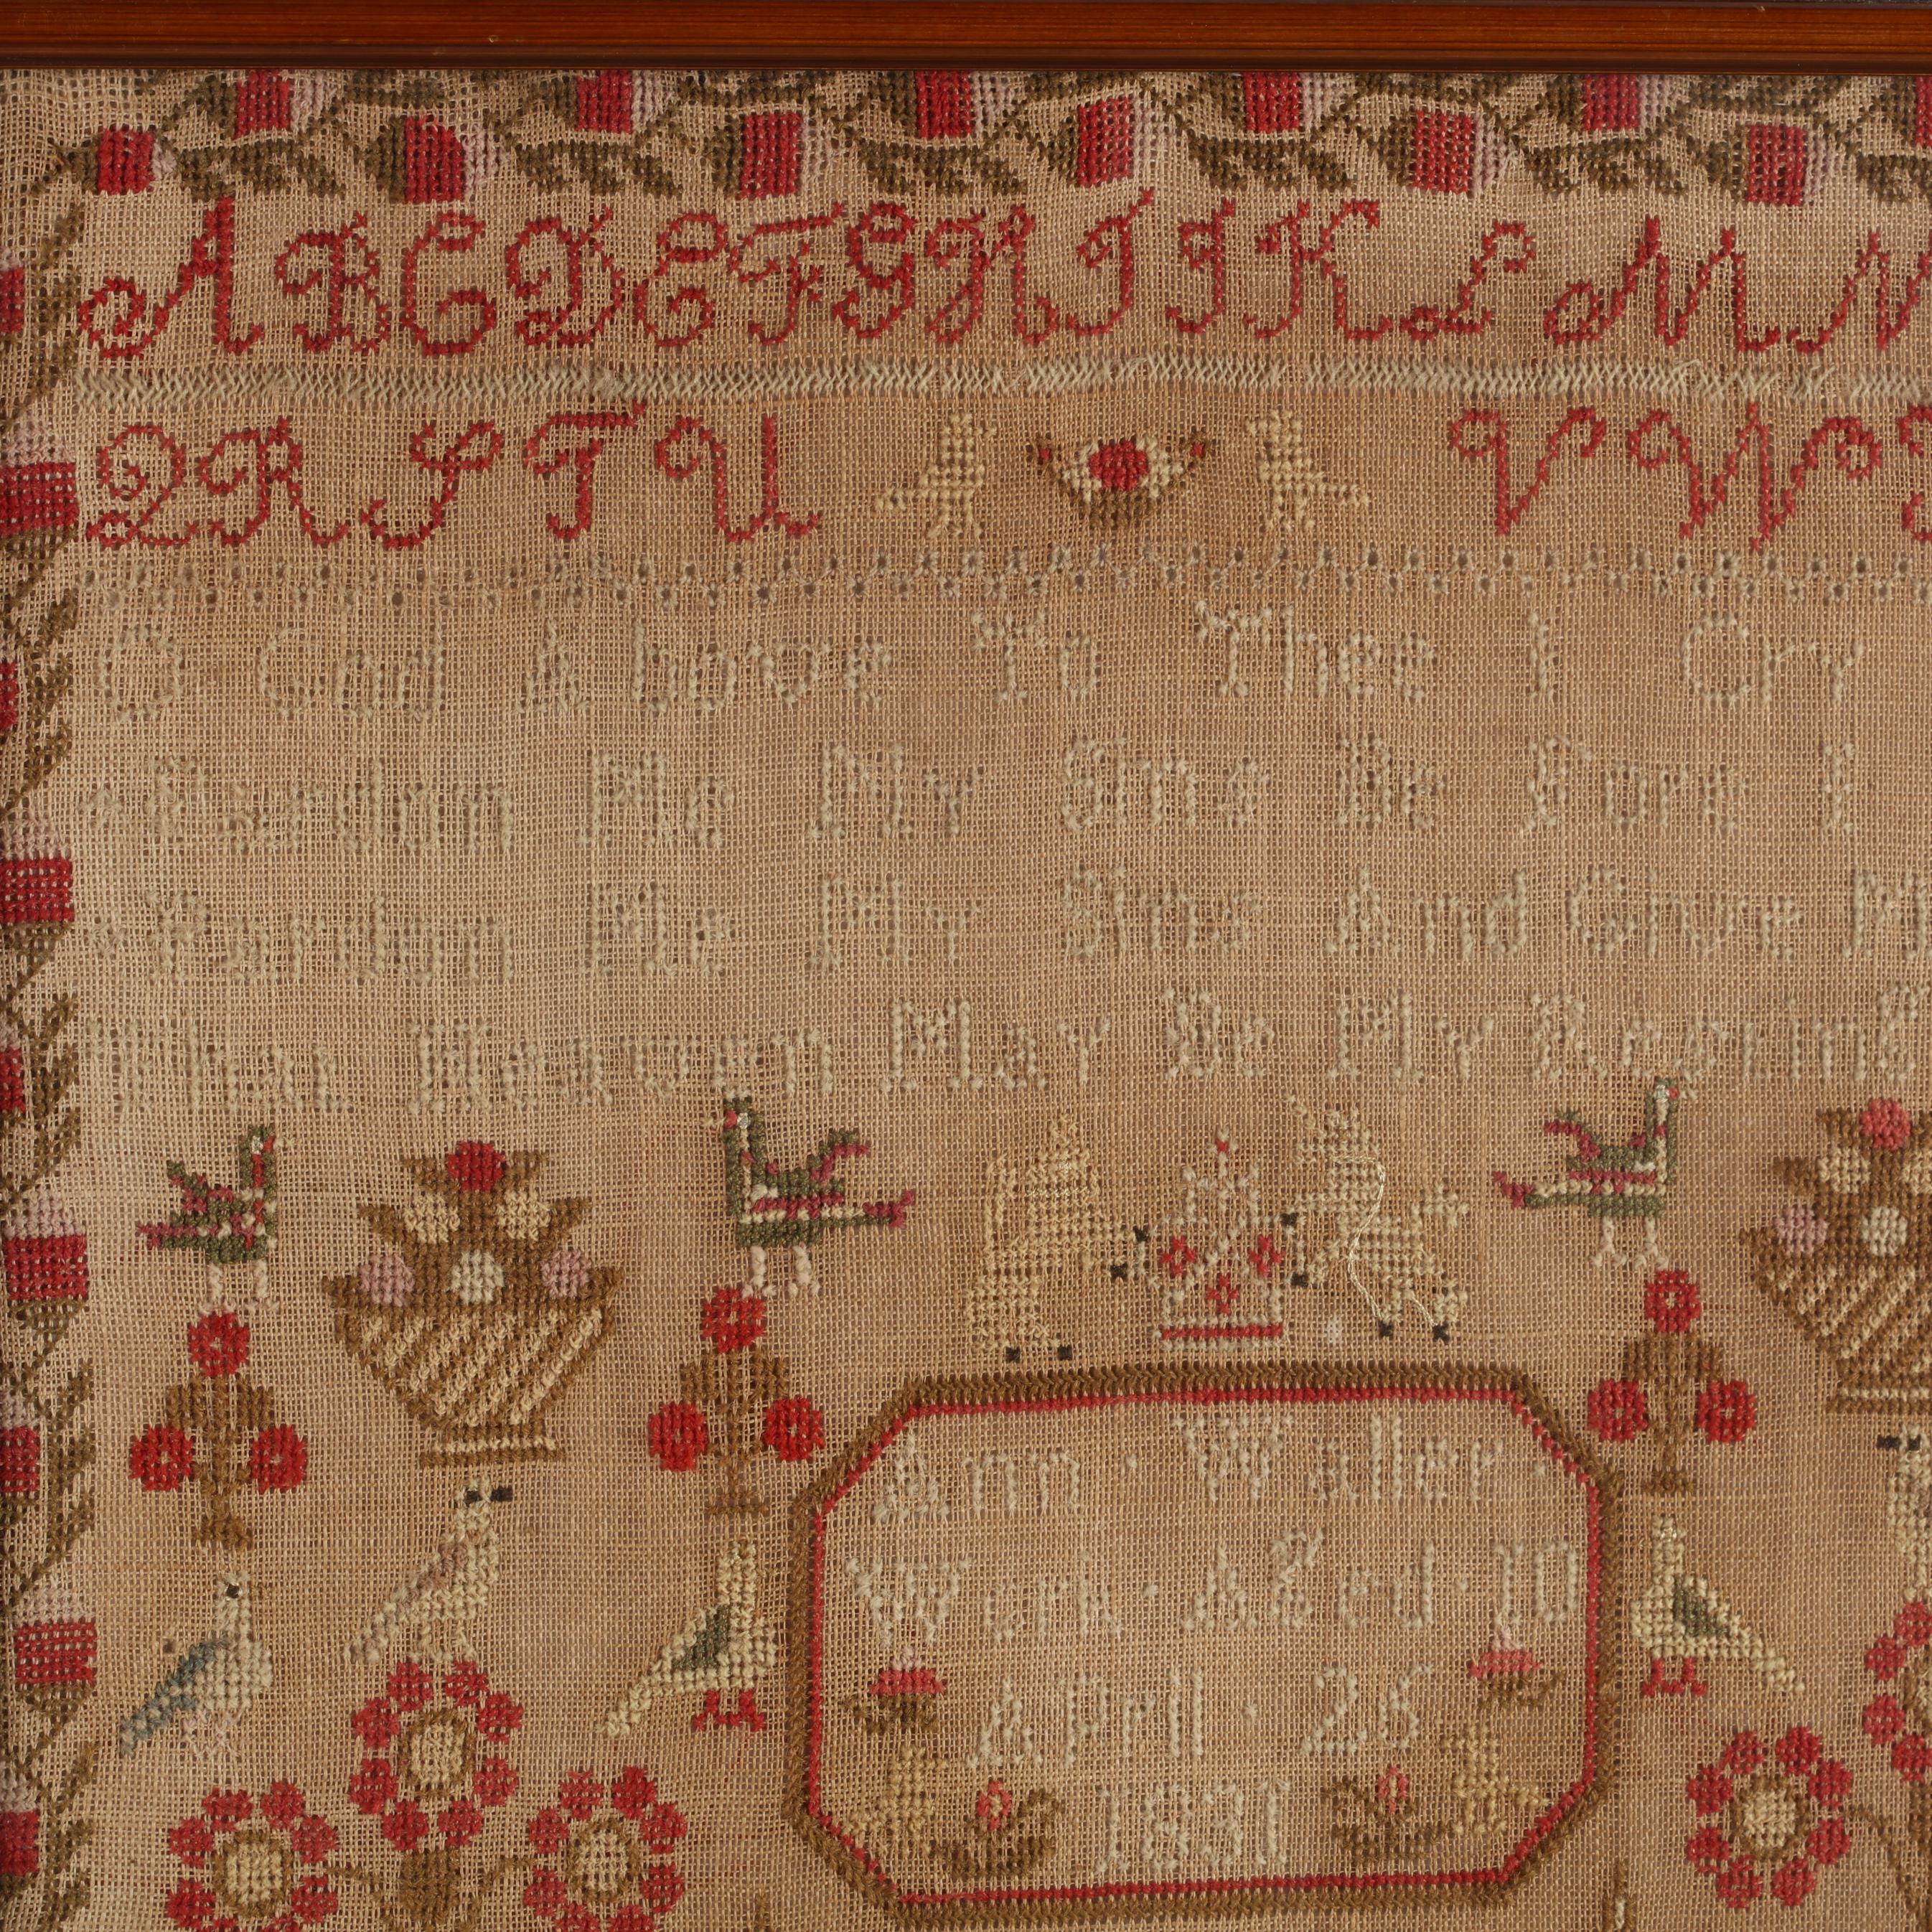 A B C D E F G H I J K L M N
Q R S T U V W
O God Above To Thee I Cry
Pardon Me My Sins Be Fore I
Pardon Me My Sins And Give
That Heaven May Be My
Ann · Waller ·
Work · Aged · 10
April · 26
1831